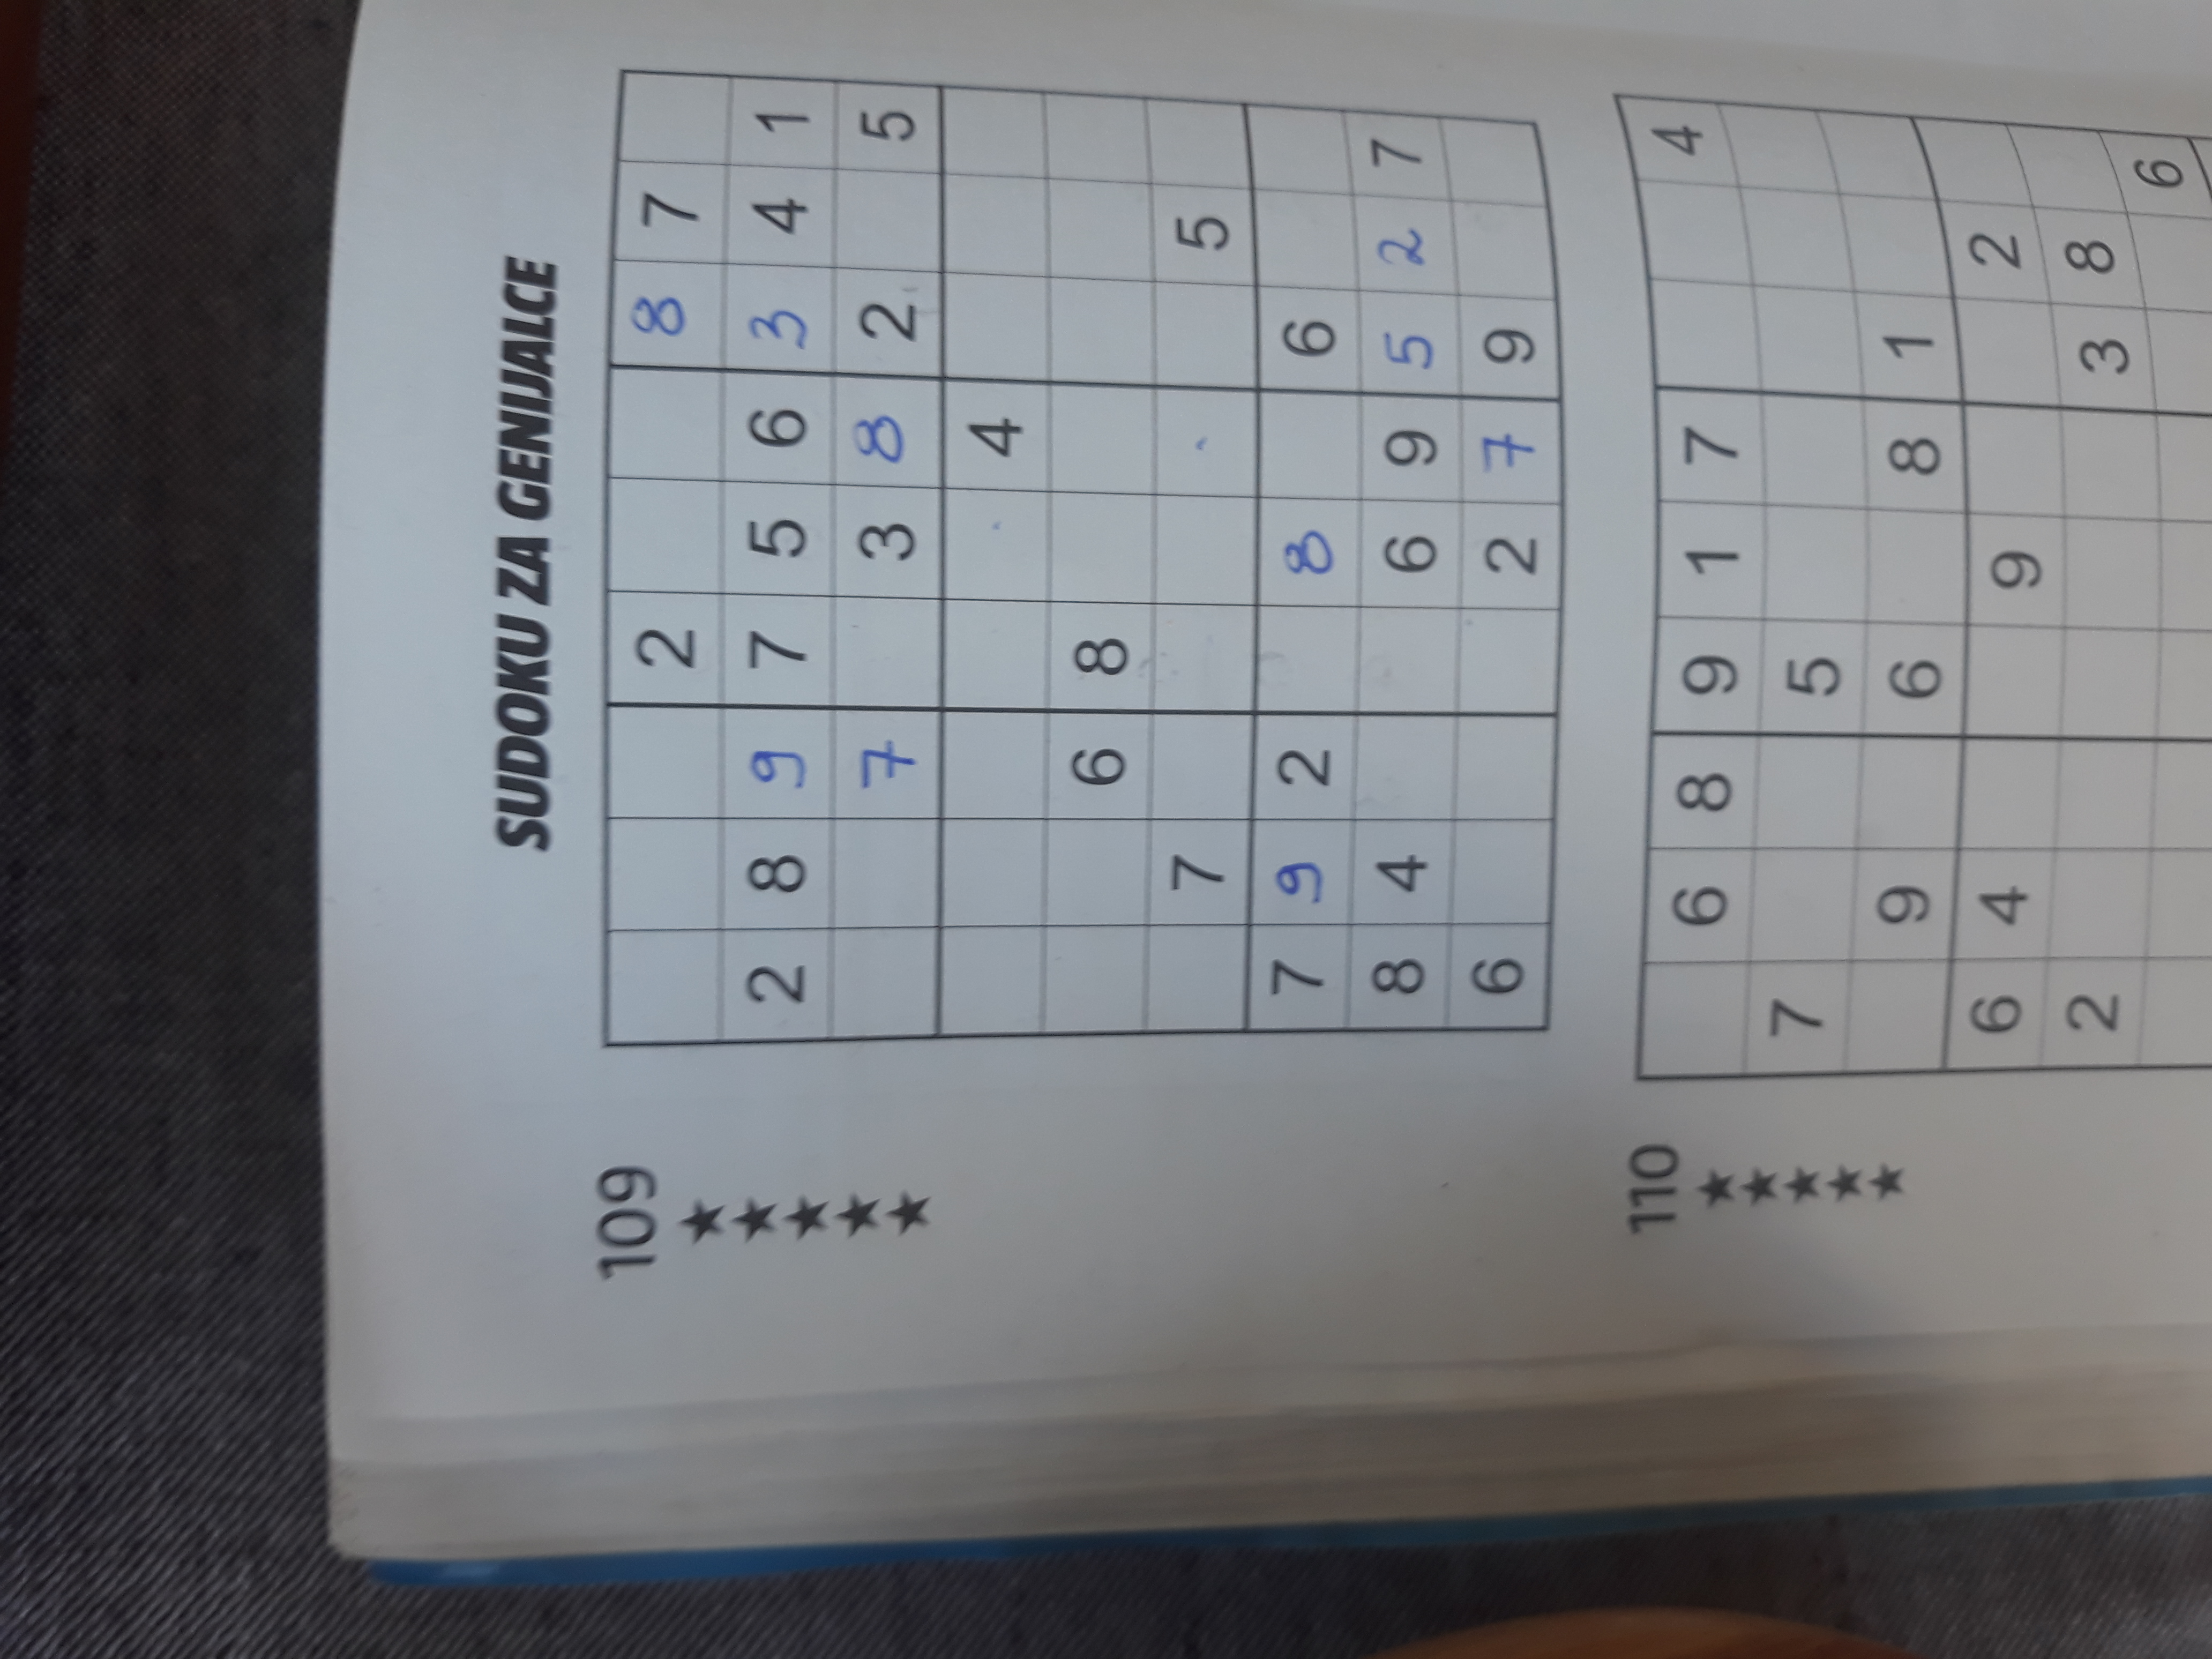 SUDOKU ZA GENIJALCE
109
★★★★★
2 8 7
2 8 9 7 5 6 3 4 1
7 3 8 2 5
4
6 8
7 5
7 9 2 8 6
8 4 6 9 5 2 7
6 2 7 9
110
★★★★★
6 8 9 1 7 4
7 5
9 6 8 1
6 4 9 2
2 3 8
6